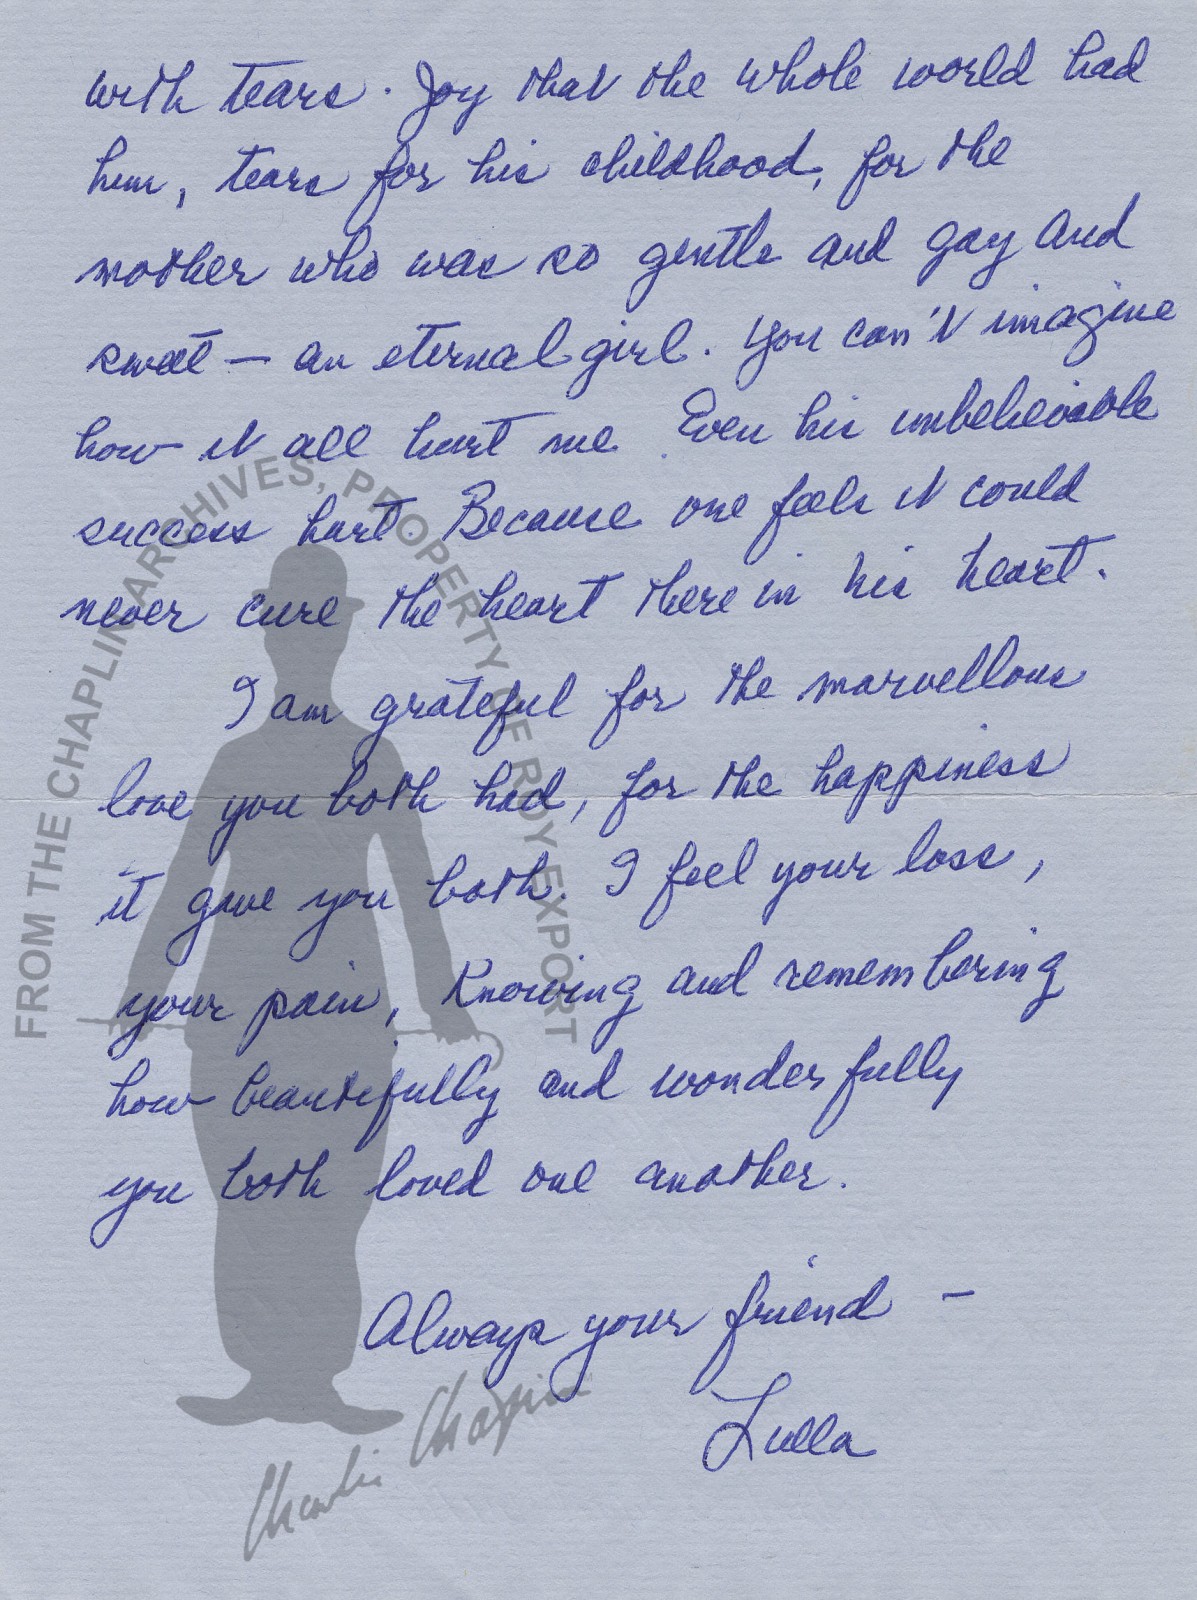 with tears. Joy that the whole world had
him, tears for his childhood, for the
mother who was so gentle and gay and
sweet — an eternal girl. You can't imagine
how it all hurt me. Even his unbelievable
success hurt. Because one feels it could
never cure the heart there in his heart.
I am grateful for the marvellous
love you both had, for the happiness
it gave you both. I feel your loss,
your pain, knowing and remembering
how beautifully and wonderfully
you both loved one another.
Always your friend —
Lulla
FROM THE CHAPLIN ARCHIVES, PROPERTY OF ROY EXPORT
Charlie Chaplin